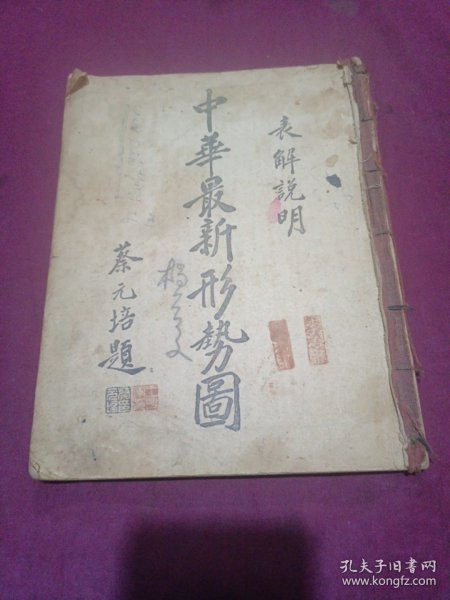 表解說明
中華最新形勢圖
蔡元培題
孔夫子旧书网
www.kongfz.com